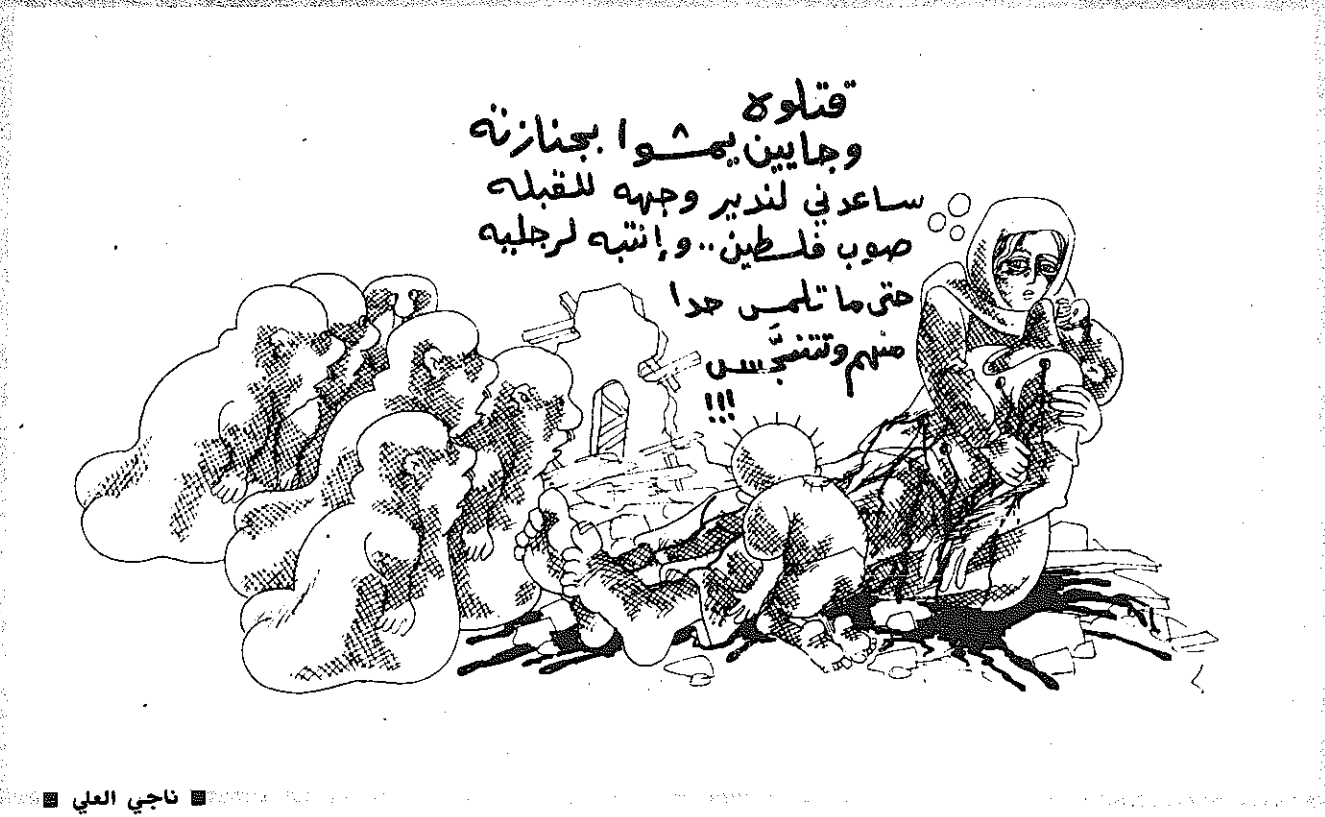 قتلوه
وجايين يمشوا بجنازته
ساعدني لندير وجهه للقبله
صوب فلسطين.. وإنتبه لرجليه
حتى ما تلمس حدا
منهم وتتنجَّس
!!!
■ ناجي العلي ■